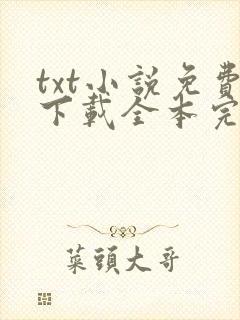 txt小說免費
下載全本完
菜頭大哥